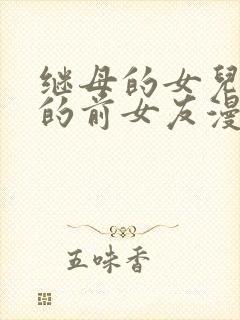 继母的女兒
的前女友漫
五味香